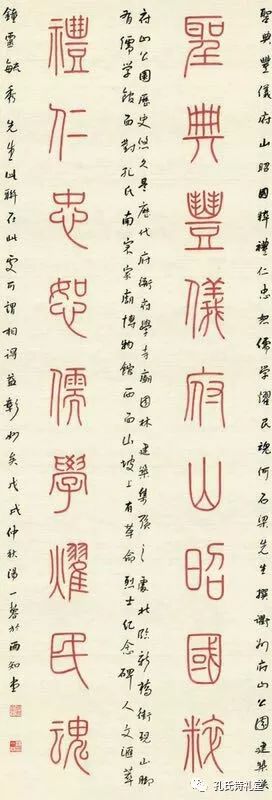 聖典豐儀府山昭國粹禮仁忠恕儒學耀民魂何石梁先生撰衢州府山公園建築楹
聖典豐儀府山昭國粹
府山公園歷史悠久是歷代府衙府學寺廟園林建築集聚之處北臨新橋街現山腳
有儒学館西對孔氏南宗家廟博物館西面山坡上有革命烈士紀念碑人文匯萃
禮仁忠恕儒學燿民魂
鐘靈毓秀先生此聯在此處可謂相得益彰妙矣戊戌仲秋湯一馨於雨知堂
孔氏诗礼堂